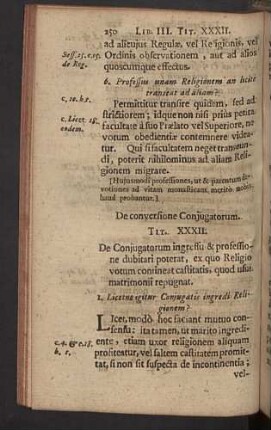 250 LIB. III. TIT. XXXII.
ad alicujus Regulæ, vel Religionis, vel
Sess. 25. c. 15. Ordinis observationem, aut ad alios
de Reg. quoscumque effectus.
6. Professus unam Religionem an licite
transeat ad aliam?
c. 10. h. t. Permittitur transire quidem, sed ad
c. Licet. 18. strictiorem; idque non nisi prius petita
eodem. facultate à suo Prælato vel Superiore, ne
votum obedientiæ contemnere videa-
tur. Qui si facultatem neget transeun-
di, poterit nihilominus ad aliam Reli-
gionem migrare.
[Hujusmodi professiones, ut & parentum
votiones ad vitam monasticam, merito nobis
haud probantur.]
De conversione Conjugatorum.
TIT. XXXII.
De Conjugatorum ingressu & professio-
ne dubitari poterat, ex quo Religio
votum contineat castitatis, quod usui
matrimonii repugnat.
1. Licetne igitur Conjugatis ingredi Reli-
gionem?
Licet, modò hoc faciant mutuo con-
sensu: ita tamen, ut marito ingredi-
c. 4. & c. 18. ente, etiam uxor religionem aliquam
h. t. profiteatur, vel saltem castitatem promit-
tat, si non sit suspecta de incontinentia;
vel-